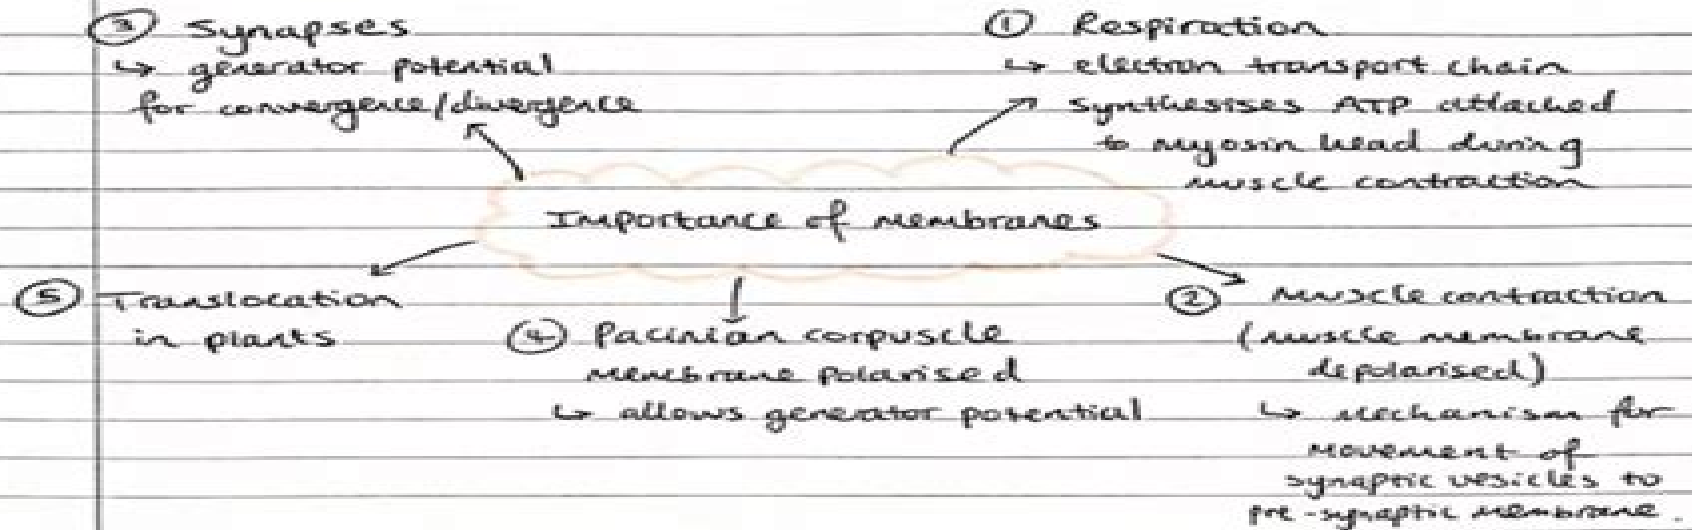 ③ Synapses
↳ generator potential
for convergence/divergence
① Respiration
↳ electron transport chain
synthesises ATP attached
to myosin head during
muscle contraction
Importance of membranes
⑤ Translocation
in plants
④ Pacinian corpuscle
membrane polarised
↳ allows generator potential
② Muscle contraction
(muscle membrane
depolarised)
↳ mechanism for
movement of
synaptic vesicles to
pre-synaptic membrane.